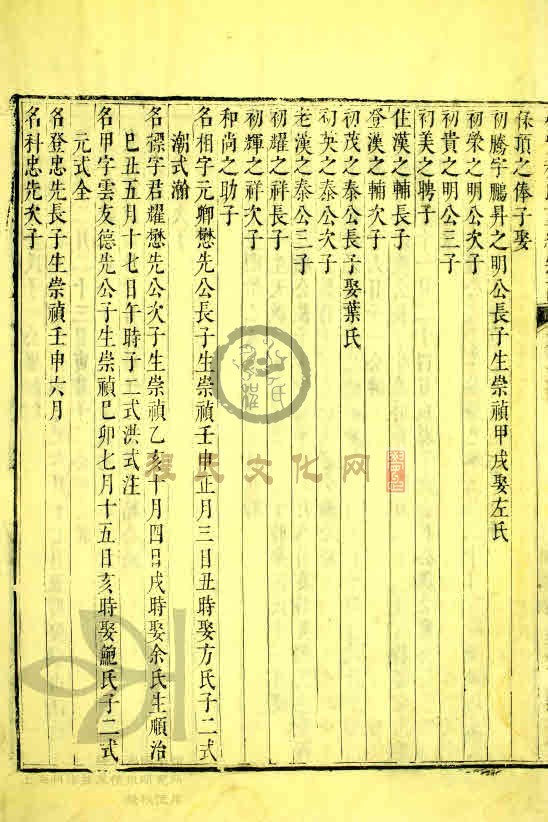 俅頂之俸子娶
初騰字鵬昇之明公長子生崇禎甲戌娶左氏
初榮之明公次子
初貴之明公三子
初美之聘子
住漢之輔長子
登漢之輔次子
初茂之泰公長子娶葉氏
初英之泰公次子
老漢之泰公三子
初耀之祥長子
初輝之祥次子
和尚之助子
名相字元卿懋先公長子生崇禎壬申正月三日丑時娶方氏子二式
潮式瀚
名標字君耀懋先公次子生崇禎乙亥十月四日戌時娶余氏生順治
巳丑五月十七日午時子二式洪式注
名甲字雲友德先公子生崇禎巳卯七月十五日亥時娶鮑氏子二式
元式全
名登忠先長子生崇禎壬申六月
名科忠先次子
程氏文化网